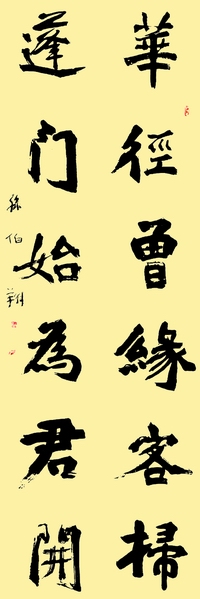 華徑曾緣客掃
蓬门始為君開
孫伯翔